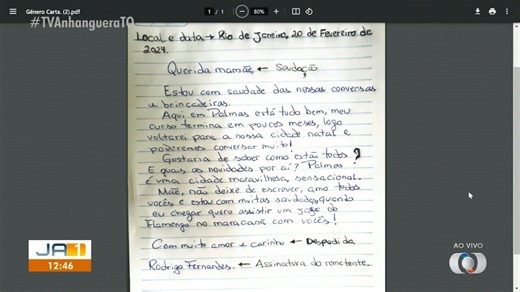 Gênero Carta. (2).pdf
1 / 1
80%
#TVAnhangueraTO
Local e data → Rio de Janeiro, 20 de Fevereiro de
2024.
Querida mamãe, ← Saudação
Estou com saudade das nossas conversas
e brincadeiras.
Aqui em Palmas está tudo bem, meu
curso termina em poucos meses, logo
voltarei para a nossa cidade natal e
poderemos conversar muito!
Gostaria de saber como estão todos?
E quais as novidades por aí? Palmas
é uma cidade maravilhosa, sensacional.
Mãe, não deixe de escrever, amo todos
vocês e estou com muitas saudades, quando
eu chegar quero assistir um jogo do
Flamengo no maracanã com vocês!
Com muito amor e carinho ← Despedida
Rodrigo Fernandes. ← Assinatura do remetente.
JA1
12:46
AO VIVO